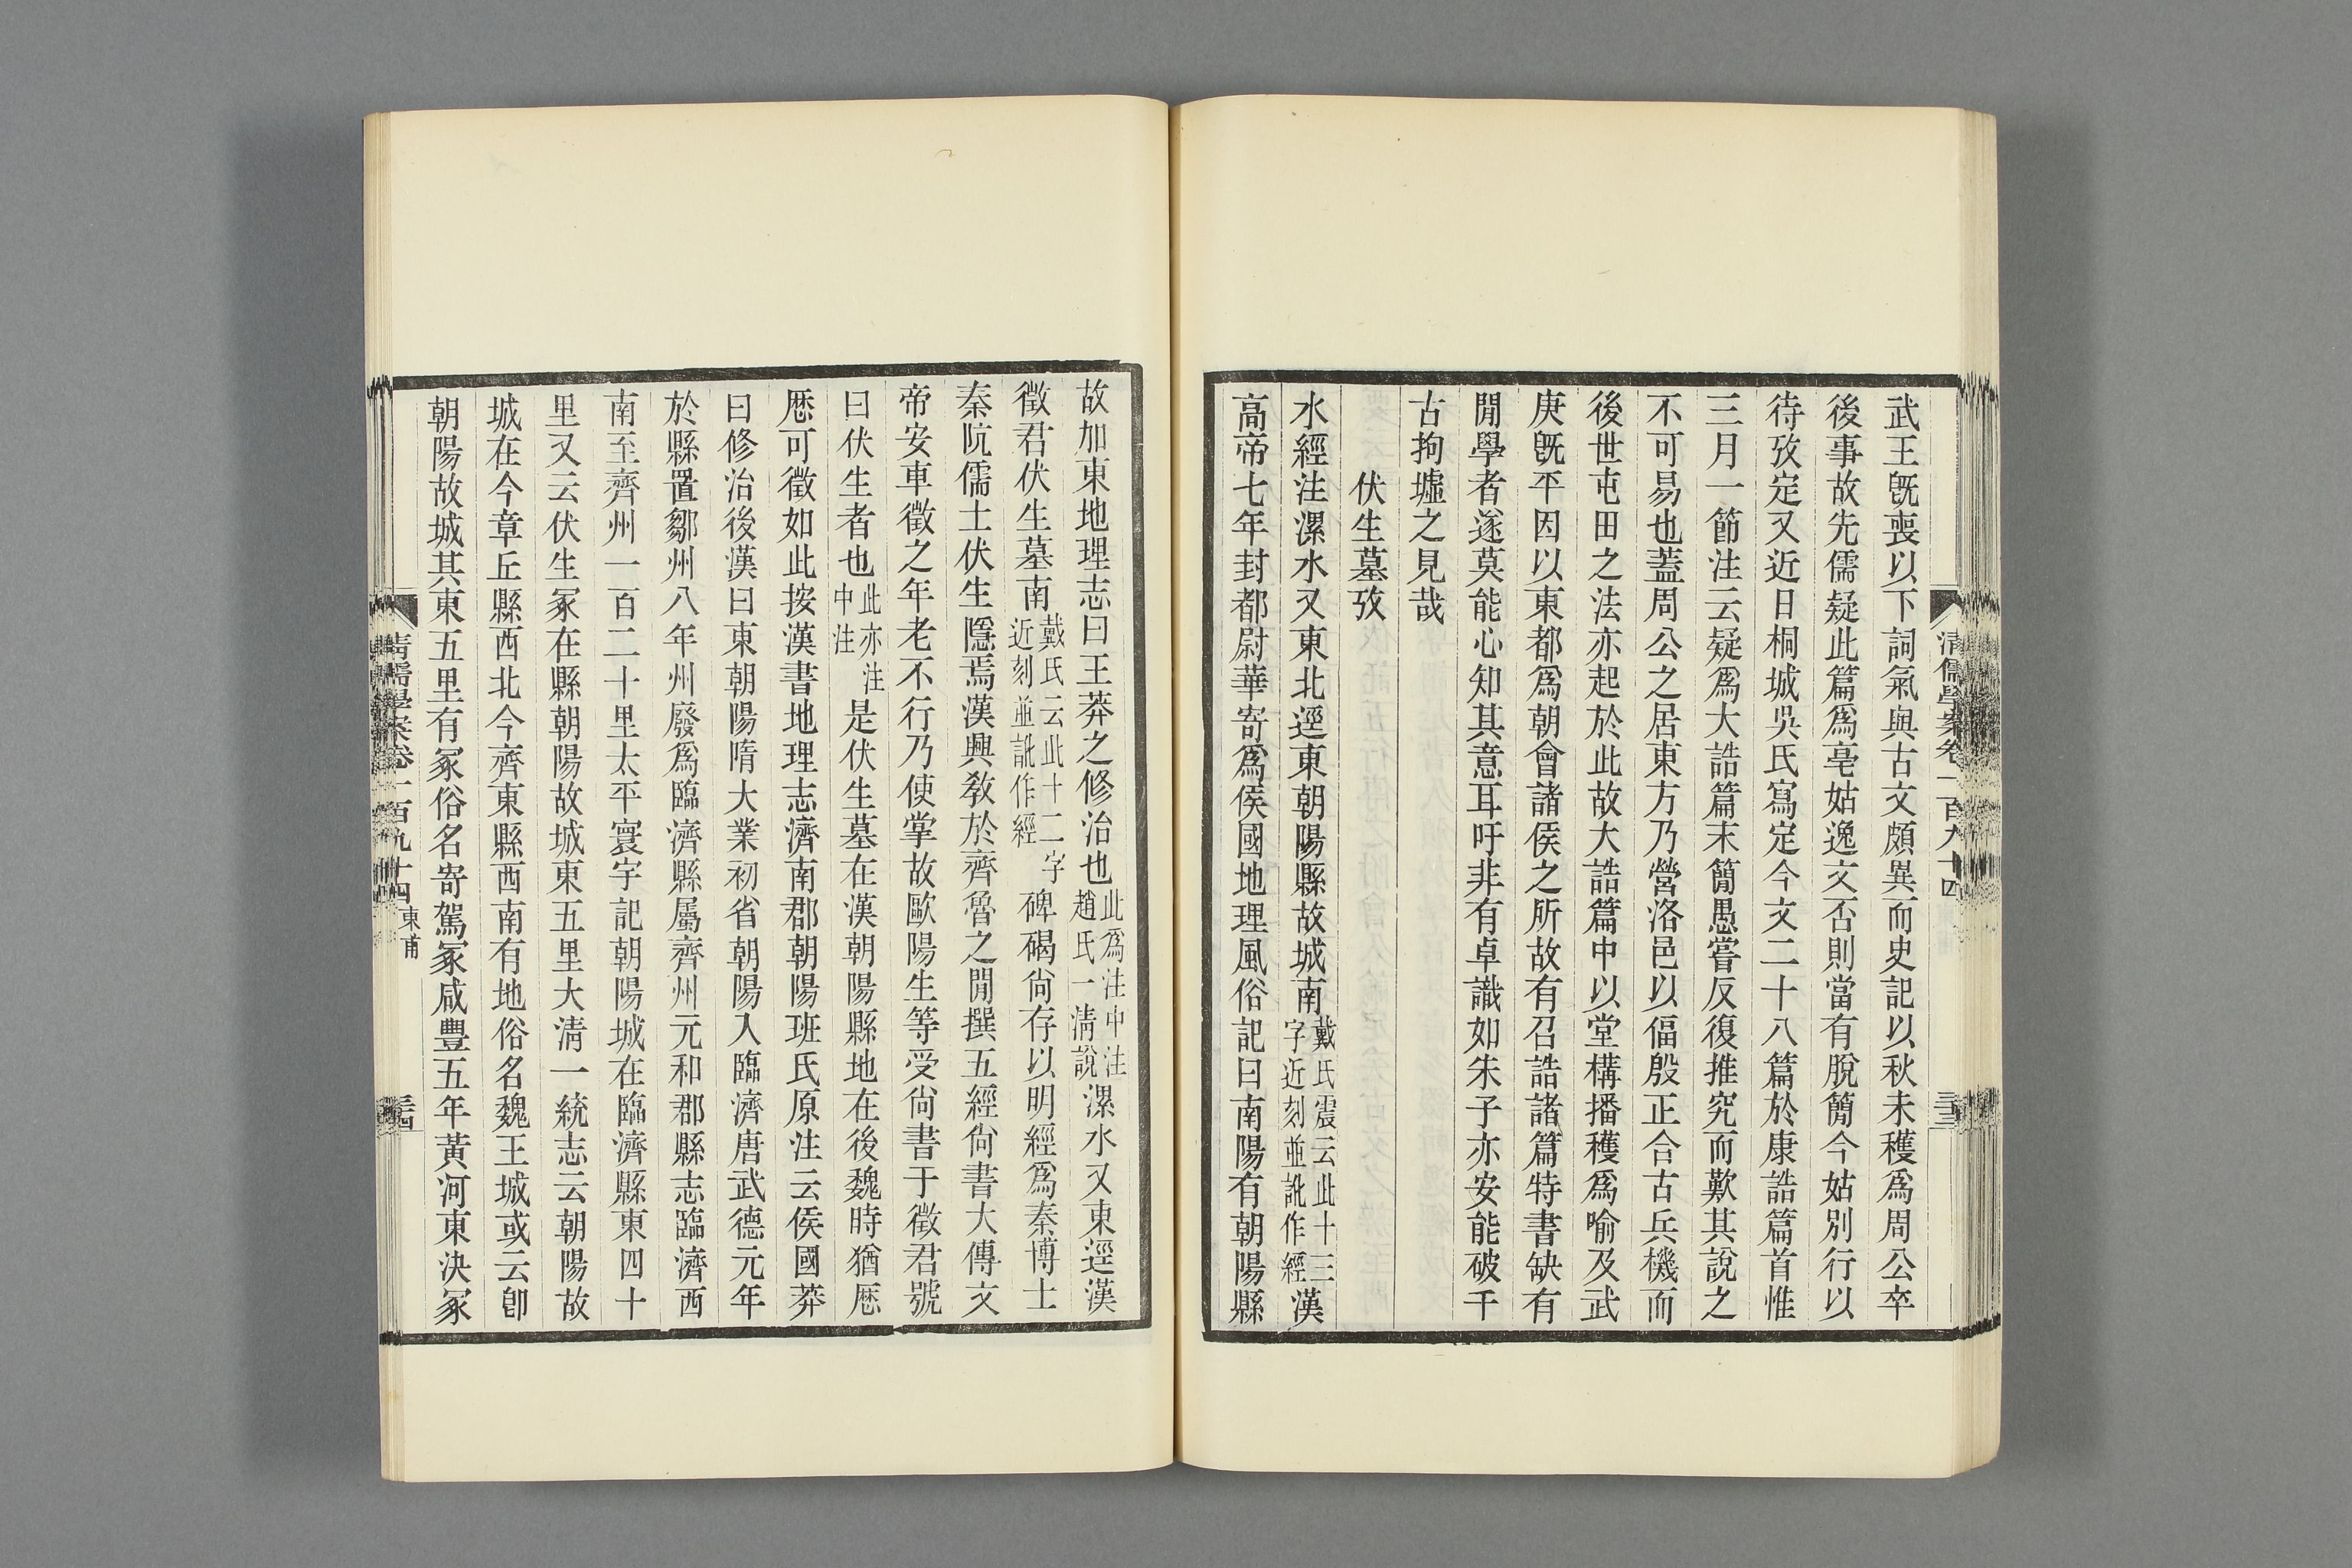 清儒學案卷一百九十四
三十三
武王旣喪以下詞氣與古文頗異而史記以秋未穫爲周公卒
後事故先儒疑此篇爲亳姑逸文否則當有脫簡今姑別行以
待攷定又近日桐城吳氏寫定今文二十八篇於康誥篇首惟
三月一節注云疑爲大誥篇末簡愚嘗反復推究而歎其說之
不可易也蓋周公之居東方乃營洛邑以偪殷正合古兵機而
後世屯田之法亦起於此故大誥篇中以堂構播穫爲喻及武
庚旣平因以東都爲朝會諸侯之所故有召誥諸篇特書缺有
閒學者遂莫能心知其意耳吁非有卓識如朱子亦安能破千
古拘墟之見哉
伏生墓攷
水經注漯水又東北逕東朝陽縣故城南戴氏震云此十三字近刻並訛作經漢
高帝七年封都尉華寄爲侯國地理風俗記曰南陽有朝陽縣
故加東地理志曰王莽之修治也此爲注中注趙氏一淸說漯水又東逕漢
徵君伏生墓南戴氏云此十二字近刻並訛作經碑碣尙存以明經爲秦博士
秦阬儒士伏生隱焉漢興敎於齊魯之閒撰五經尙書大傳文
帝安車徵之年老不行乃使掌故歐陽生等受尙書于徵君號
曰伏生者也此亦注中注是伏生墓在漢朝陽縣地在後魏時猶歷
歷可徵如此按漢書地理志濟南郡朝陽班氏原注云侯國莽
曰修治後漢曰東朝陽隋大業初省朝陽入臨濟唐武德元年
於縣置鄒州八年州廢爲臨濟縣屬齊州元和郡縣志臨濟西
南至齊州一百二十里太平寰宇記朝陽城在臨濟縣東四十
里又云伏生冢在縣朝陽故城東五里大淸一統志云朝陽故
城在今章丘縣西北今齊東縣西南有地俗名魏王城或云卽
朝陽故城其東五里有冢俗名寄駕冢咸豐五年黃河東決冢
清儒學案卷一百九十四 東甫
三十四